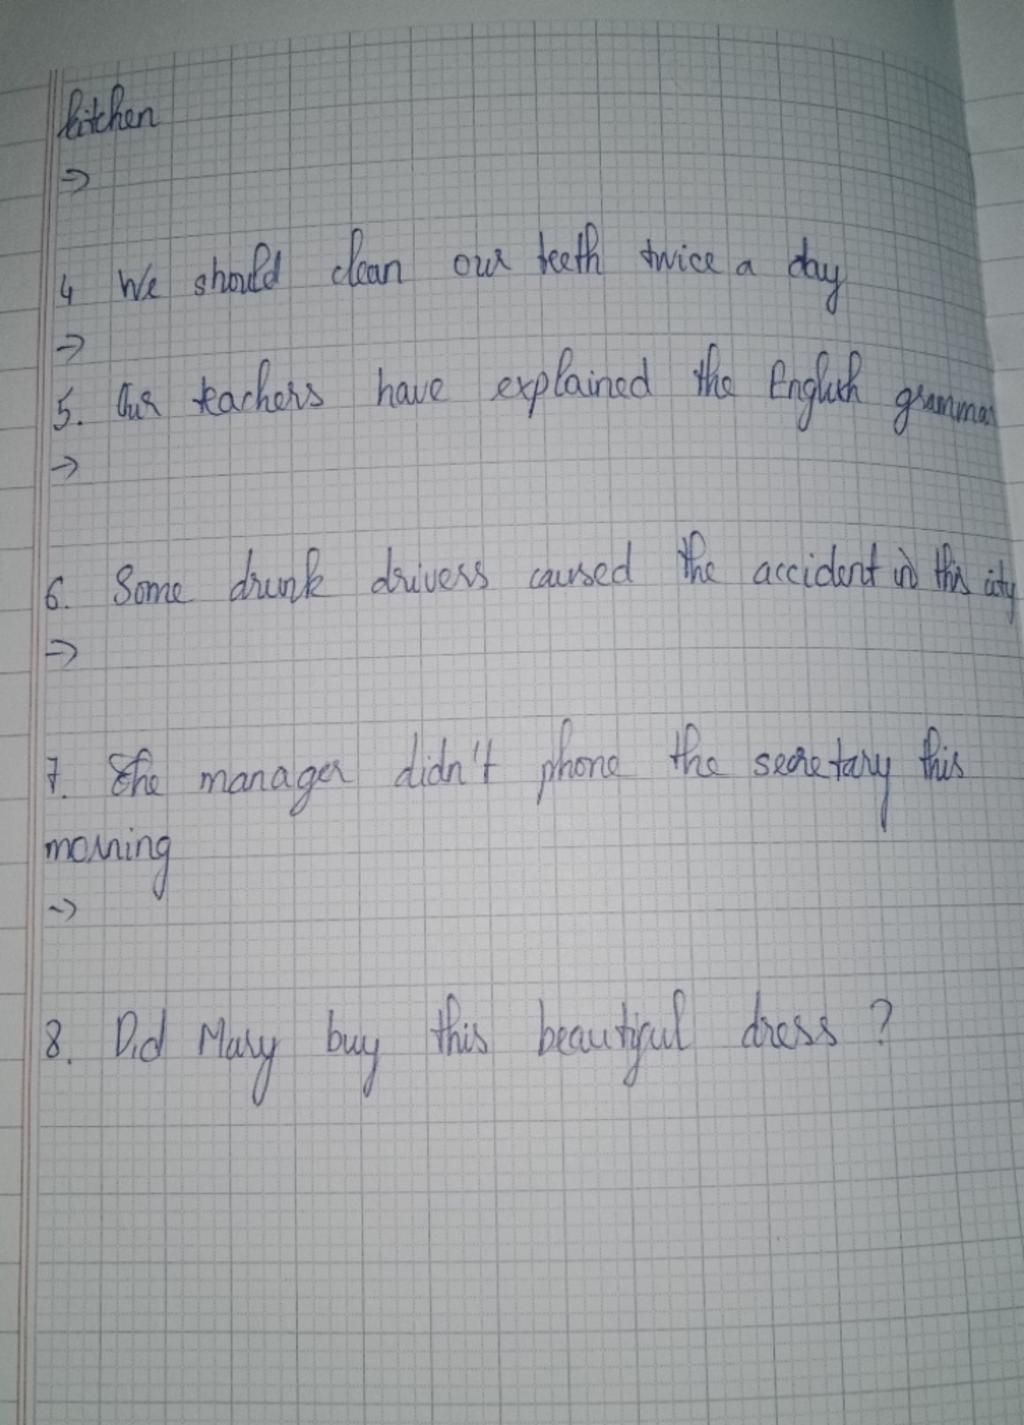 kitchen
=>
4 We should clean our teeth twice a day
=>
5. Our teachers have explained the English grammar
=>
6. Some drunk drivers caused the accident in this city
=>
7. The manager didn't phone the secretary this
morning
=>
8. Did Mary buy this beautiful dress ?